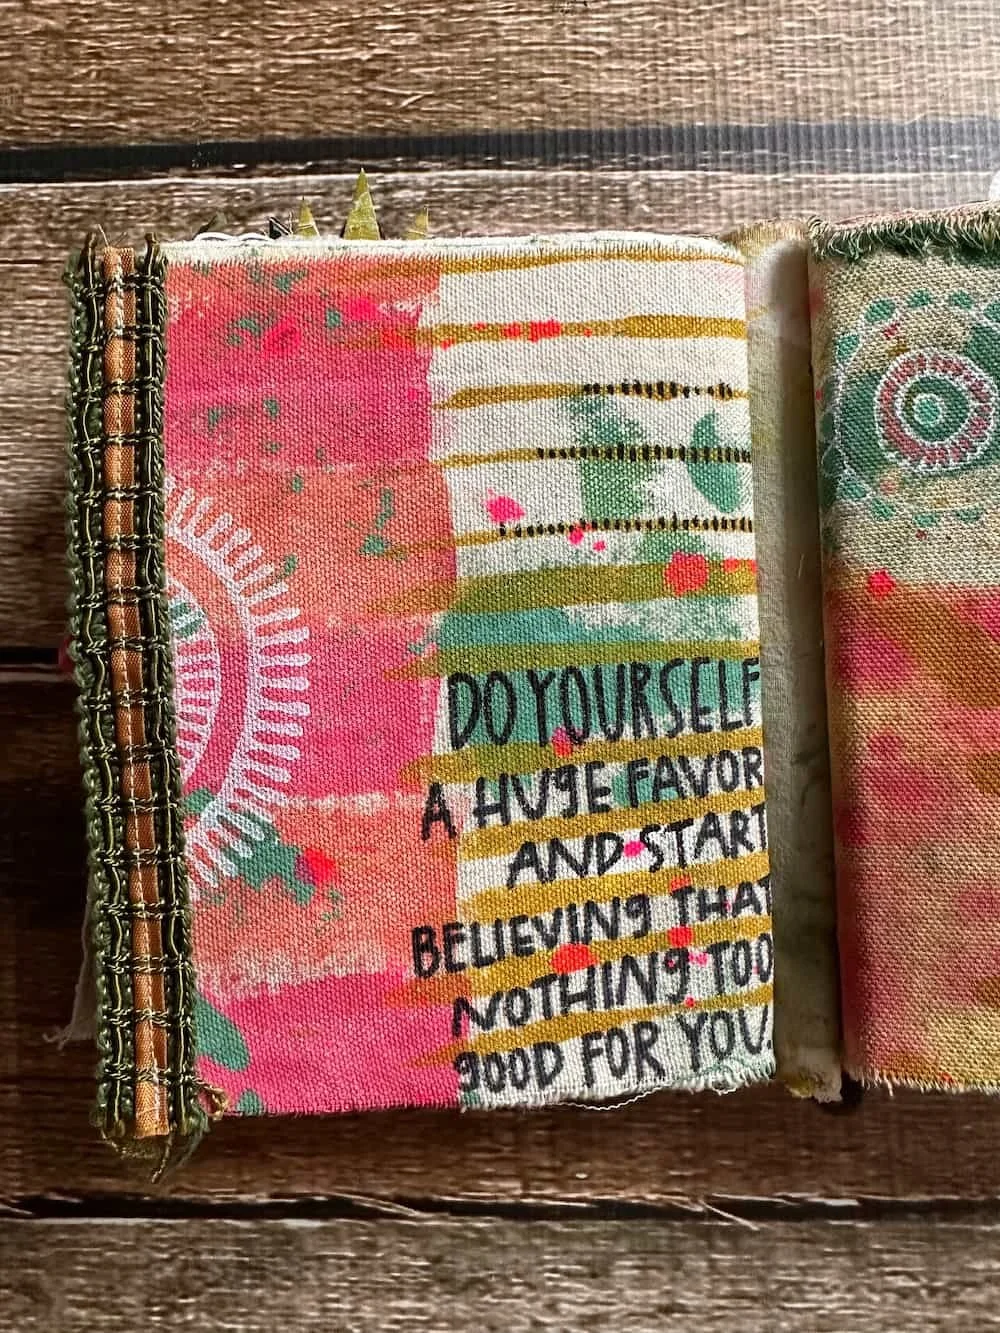 DO YOURSELF
A HUgE FAVOR
AND START
BELIEVINg THAT
NOTHINg TOO
gOOD FOR YOU.